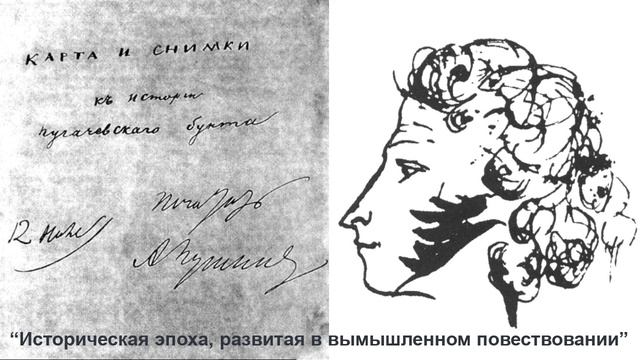 КАРТА И СНИМКИ
къ исторіи
пугачевскаго бунта
Печатать
12 Нояб
АПушкинъ
“Историческая эпоха, развитая в вымышленном повествовании”